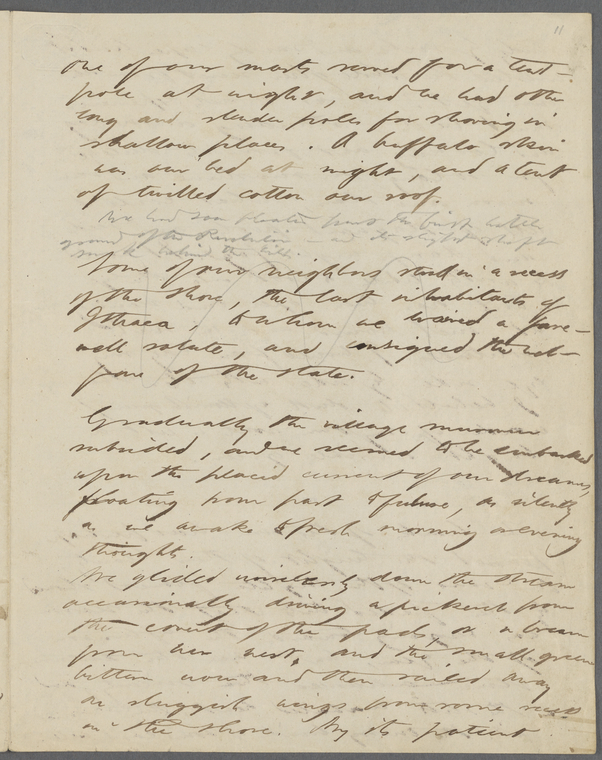 11
one of our masts served for a tent-
pole at night, and we had other
long and slender poles for shoving in
shallow places. A buffalo skin
was our bed at night, and a tent
of twilled cotton our roof.
We had soon floated past the first battle
ground of the Revolution
behind the hill.
Some of our neighbors stood in a recess
of the shore, the last inhabitants of
Ithaca, to whom we waived a fare-
well salute, and consigned the wel-
fare of the state.
Gradually the village murmur
subsided, and we seemed to be embarked
upon the placid current of our dreams,
floating from past to future, as silently
as we awake to fresh morning or evening
thought.
We glided noiselessly down the stream
occasionally driving a pickerel from
the covert of the pads, or a bream
from her nest, and the small green
bittern now and then sailed away
on sluggish wings from some recess
in the shore. By its patient